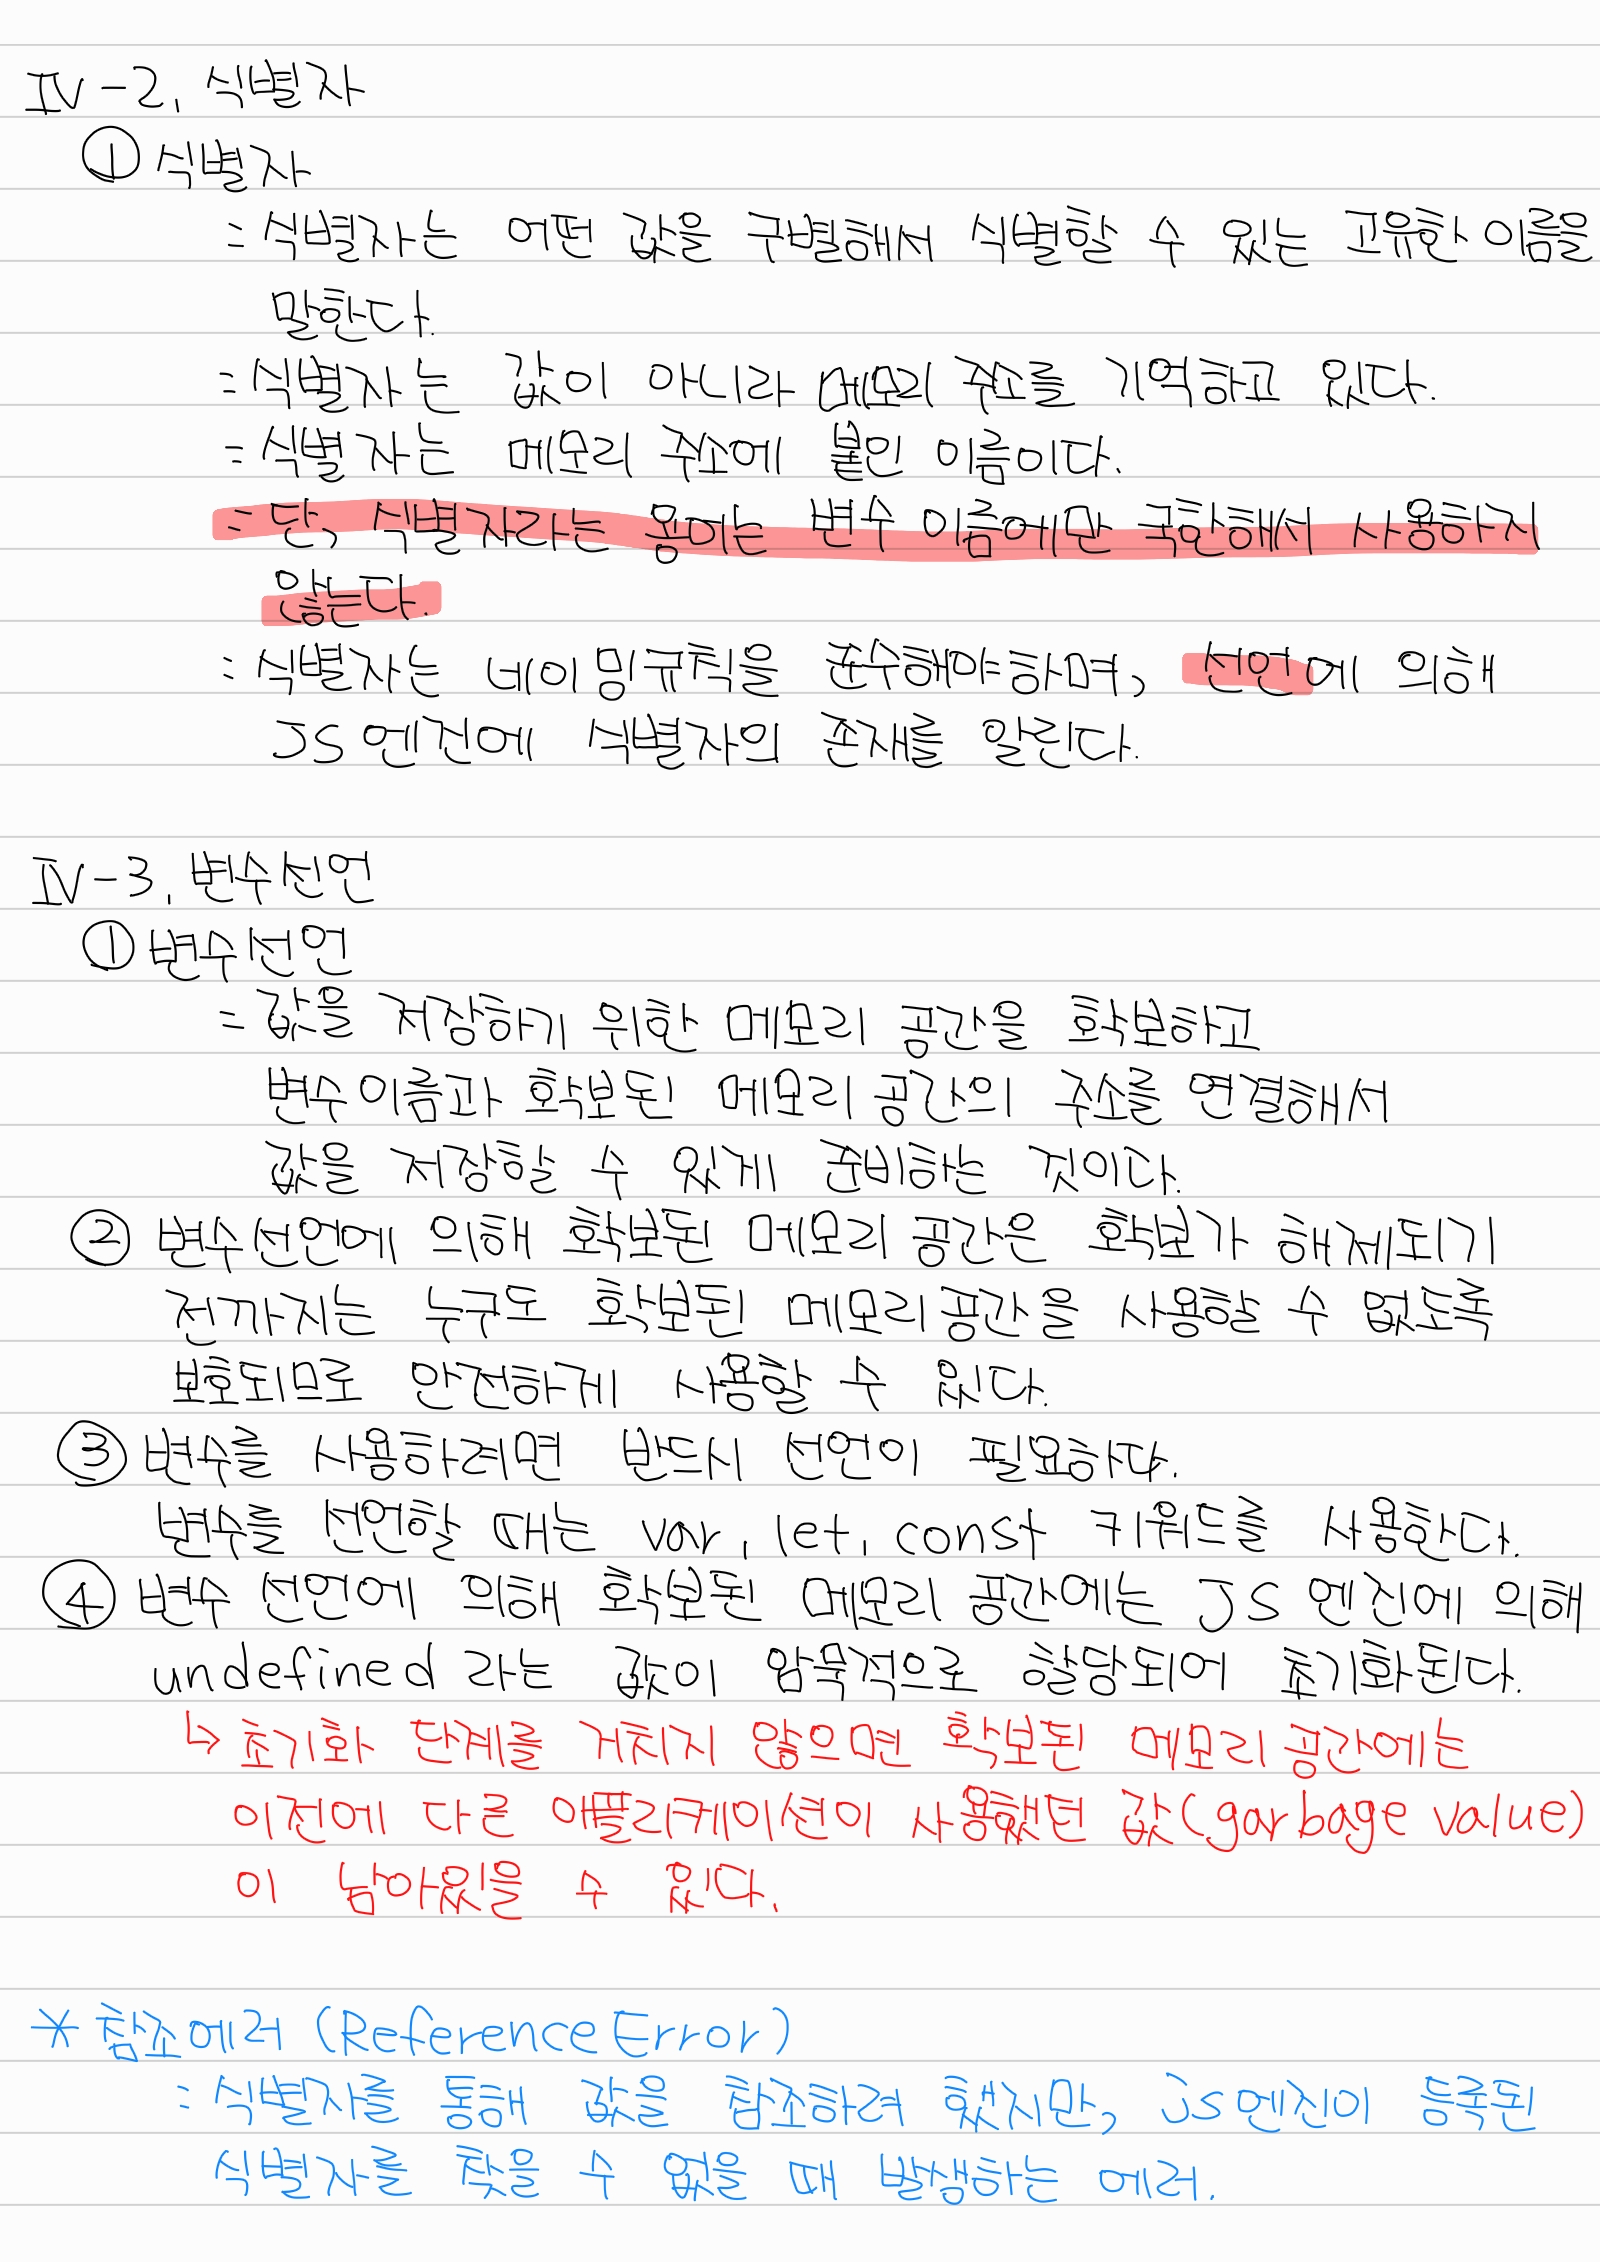 IV-2. 식별자
① 식별자
= 식별자는 어떤 값을 구별해서 식별할 수 있는 고유한 이름을
말한다.
= 식별자는 값이 아니라 메모리 주소를 기억하고 있다.
= 식별자는 메모리 주소에 붙인 이름이다.
= 단, 식별자라는 용어는 변수 이름에만 국한해서 사용하지
않는다.
= 식별자는 네이밍규칙을 준수해야하며, 선언에 의해
JS 엔진에 식별자의 존재를 알린다.
IV-3. 변수선언
① 변수선언
= 값을 저장하기 위한 메모리 공간을 확보하고
변수이름과 확보된 메모리 공간의 주소를 연결해서
값을 저장할 수 있게 준비하는 것이다.
② 변수선언에 의해 확보된 메모리 공간은 확보가 해제되기
전까지는 누구도 확보된 메모리공간을 사용할 수 없도록
보호되므로 안전하게 사용할 수 있다.
③ 변수를 사용하려면 반드시 선언이 필요하다.
변수를 선언할 때는 var, let, const 키워드를 사용한다.
④ 변수 선언에 의해 확보된 메모리 공간에는 JS 엔진에 의해
undefined 라는 값이 암묵적으로 할당되어 초기화된다.
↳ 초기화 단계를 거치지 않으면 확보된 메모리 공간에는
이전에 다른 애플리케이션이 사용했던 값(garbage value)
이 남아있을 수 있다.
* 참조에러 (Reference Error)
= 식별자를 통해 값을 참조하려 했지만, js엔진이 등록된
식별자를 찾을 수 없을 때 발생하는 에러.